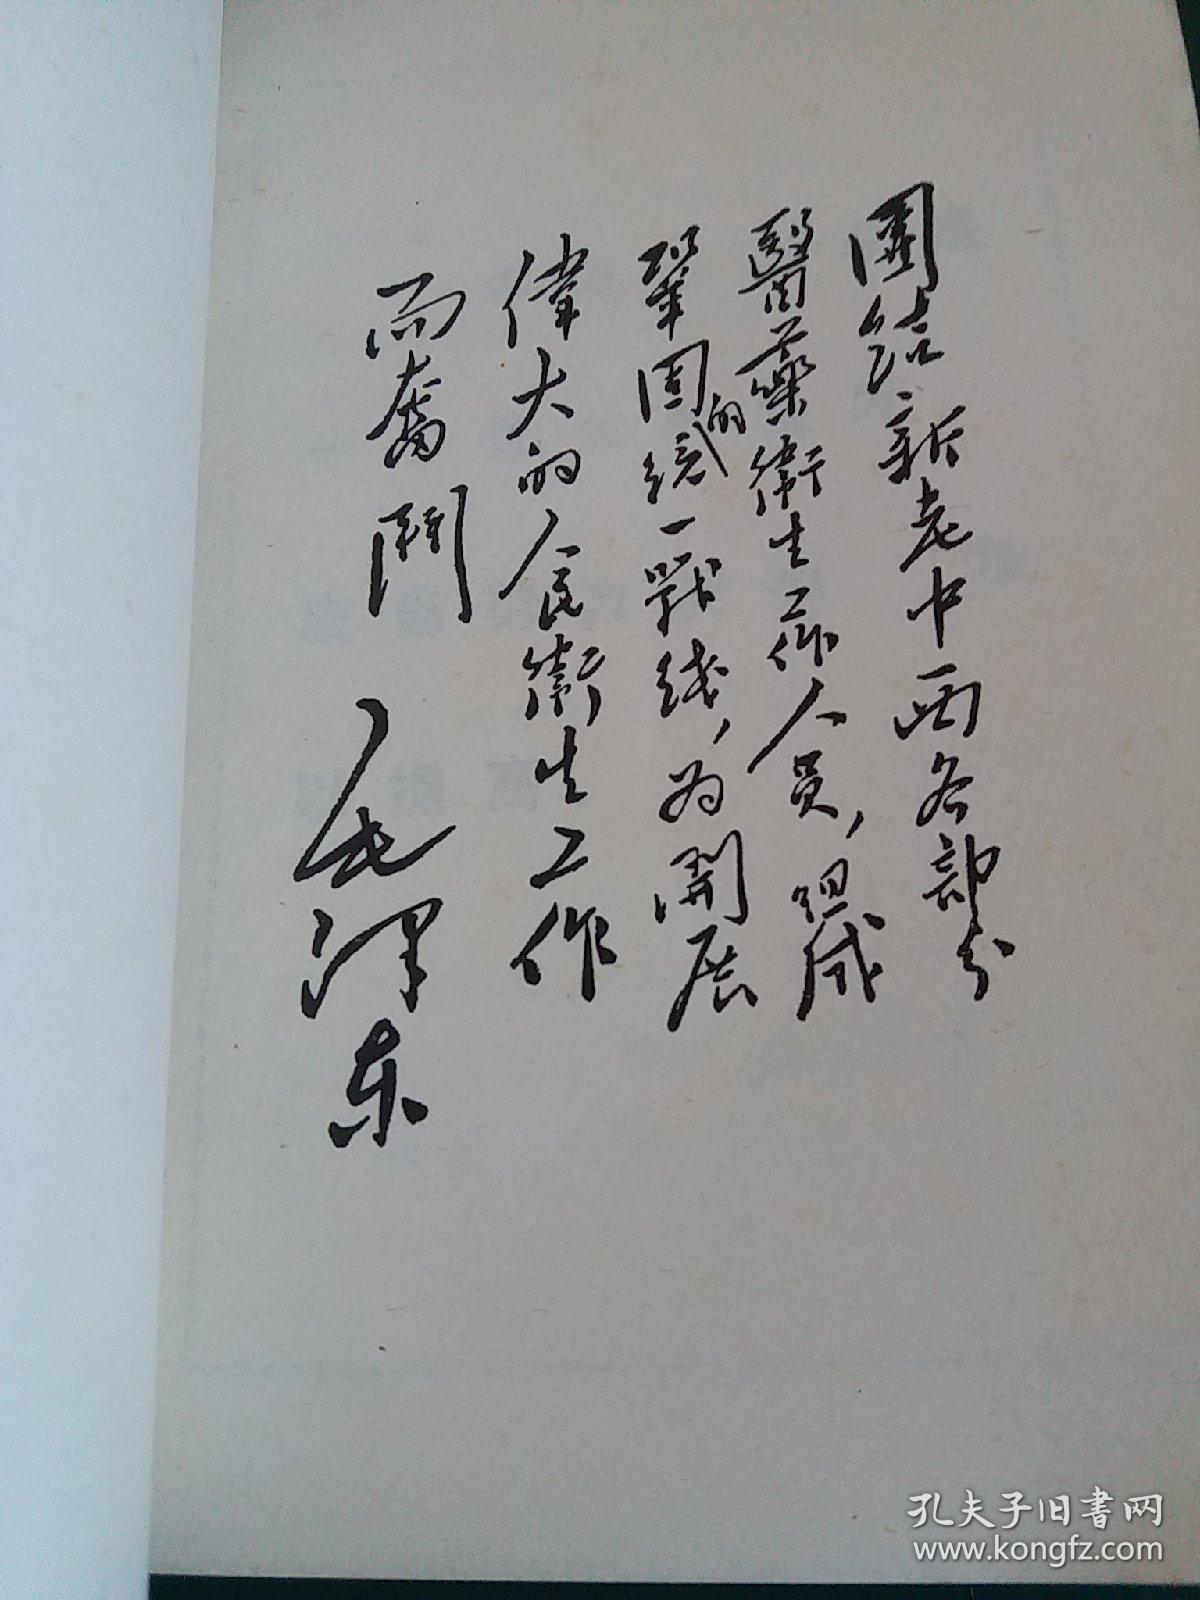 團结新老中西各部分
醫藥衛生工作人員，组成
鞏固的统一戰线，为開展
偉大的人民衛生工作
而奮鬥
毛泽东
孔夫子旧书网
www.kongfz.com